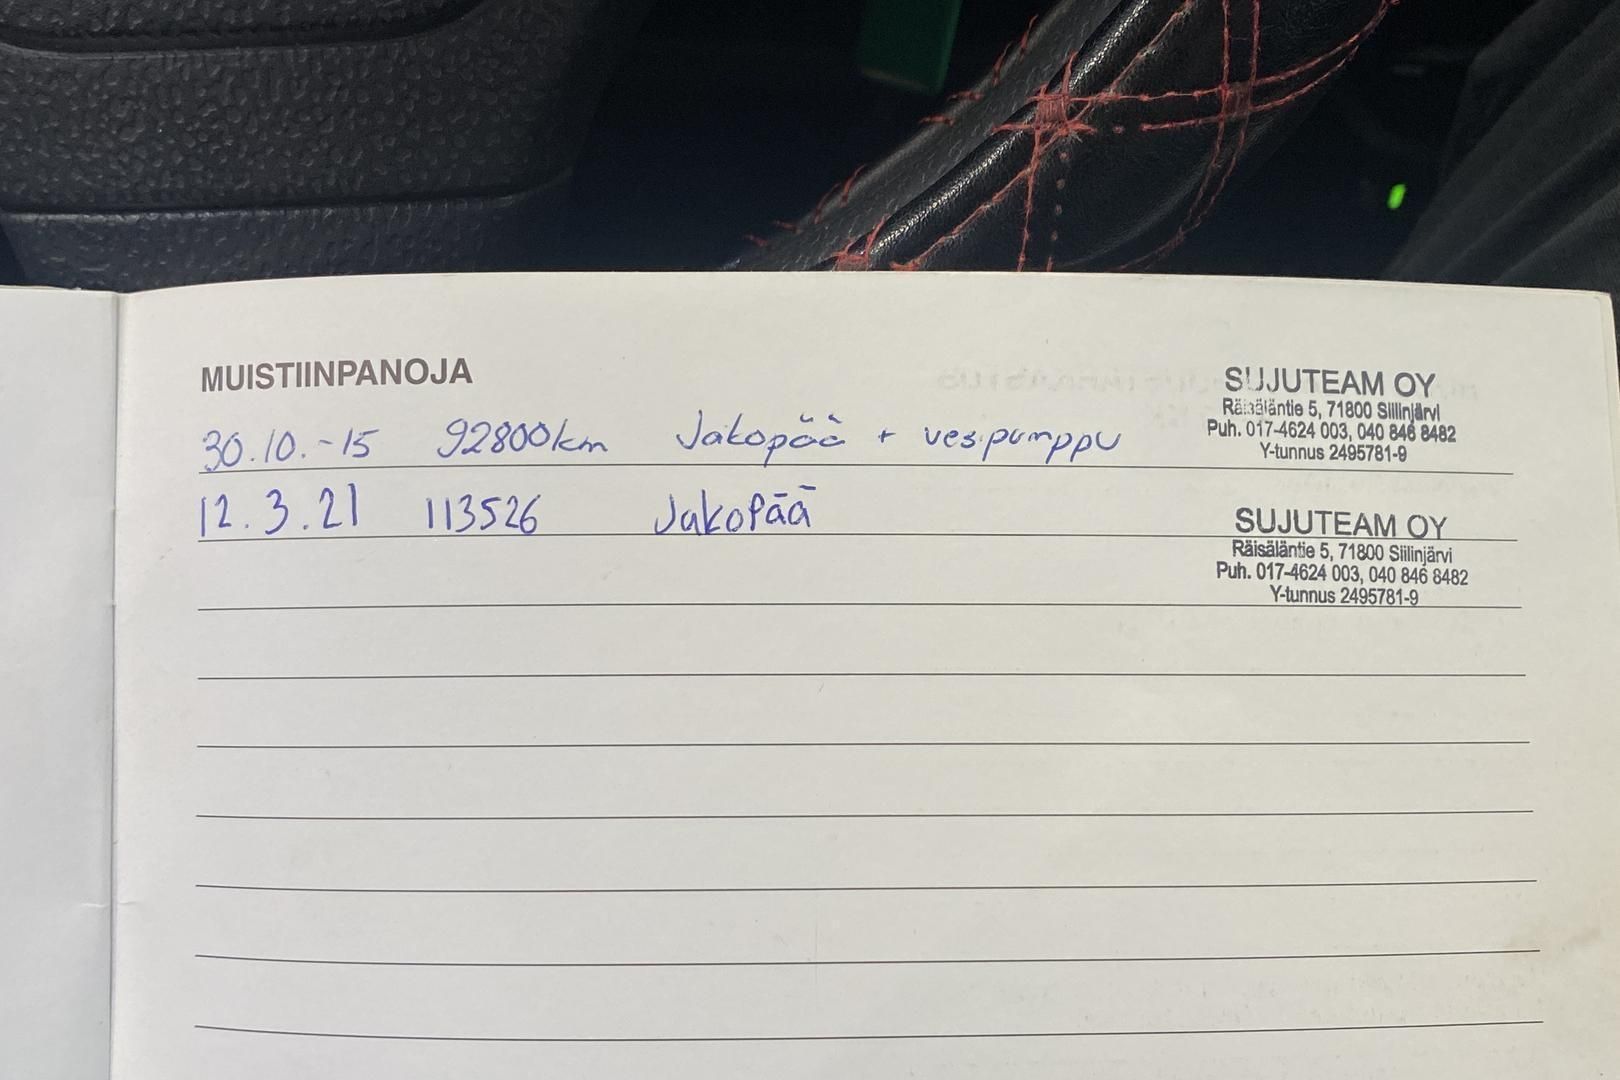 MUISTIINPANOJA
30.10.-15 92800km Jakopää + vesipumppu
SUJUTEAM OY
Räisäläntie 5, 71800 Siilinjärvi
Puh. 017-4624 003, 040 846 8482
Y-tunnus 2495781-9
12.3.21 113526 Jakopää
SUJUTEAM OY
Räisäläntie 5, 71800 Siilinjärvi
Puh. 017-4624 003, 040 846 8482
Y-tunnus 2495781-9